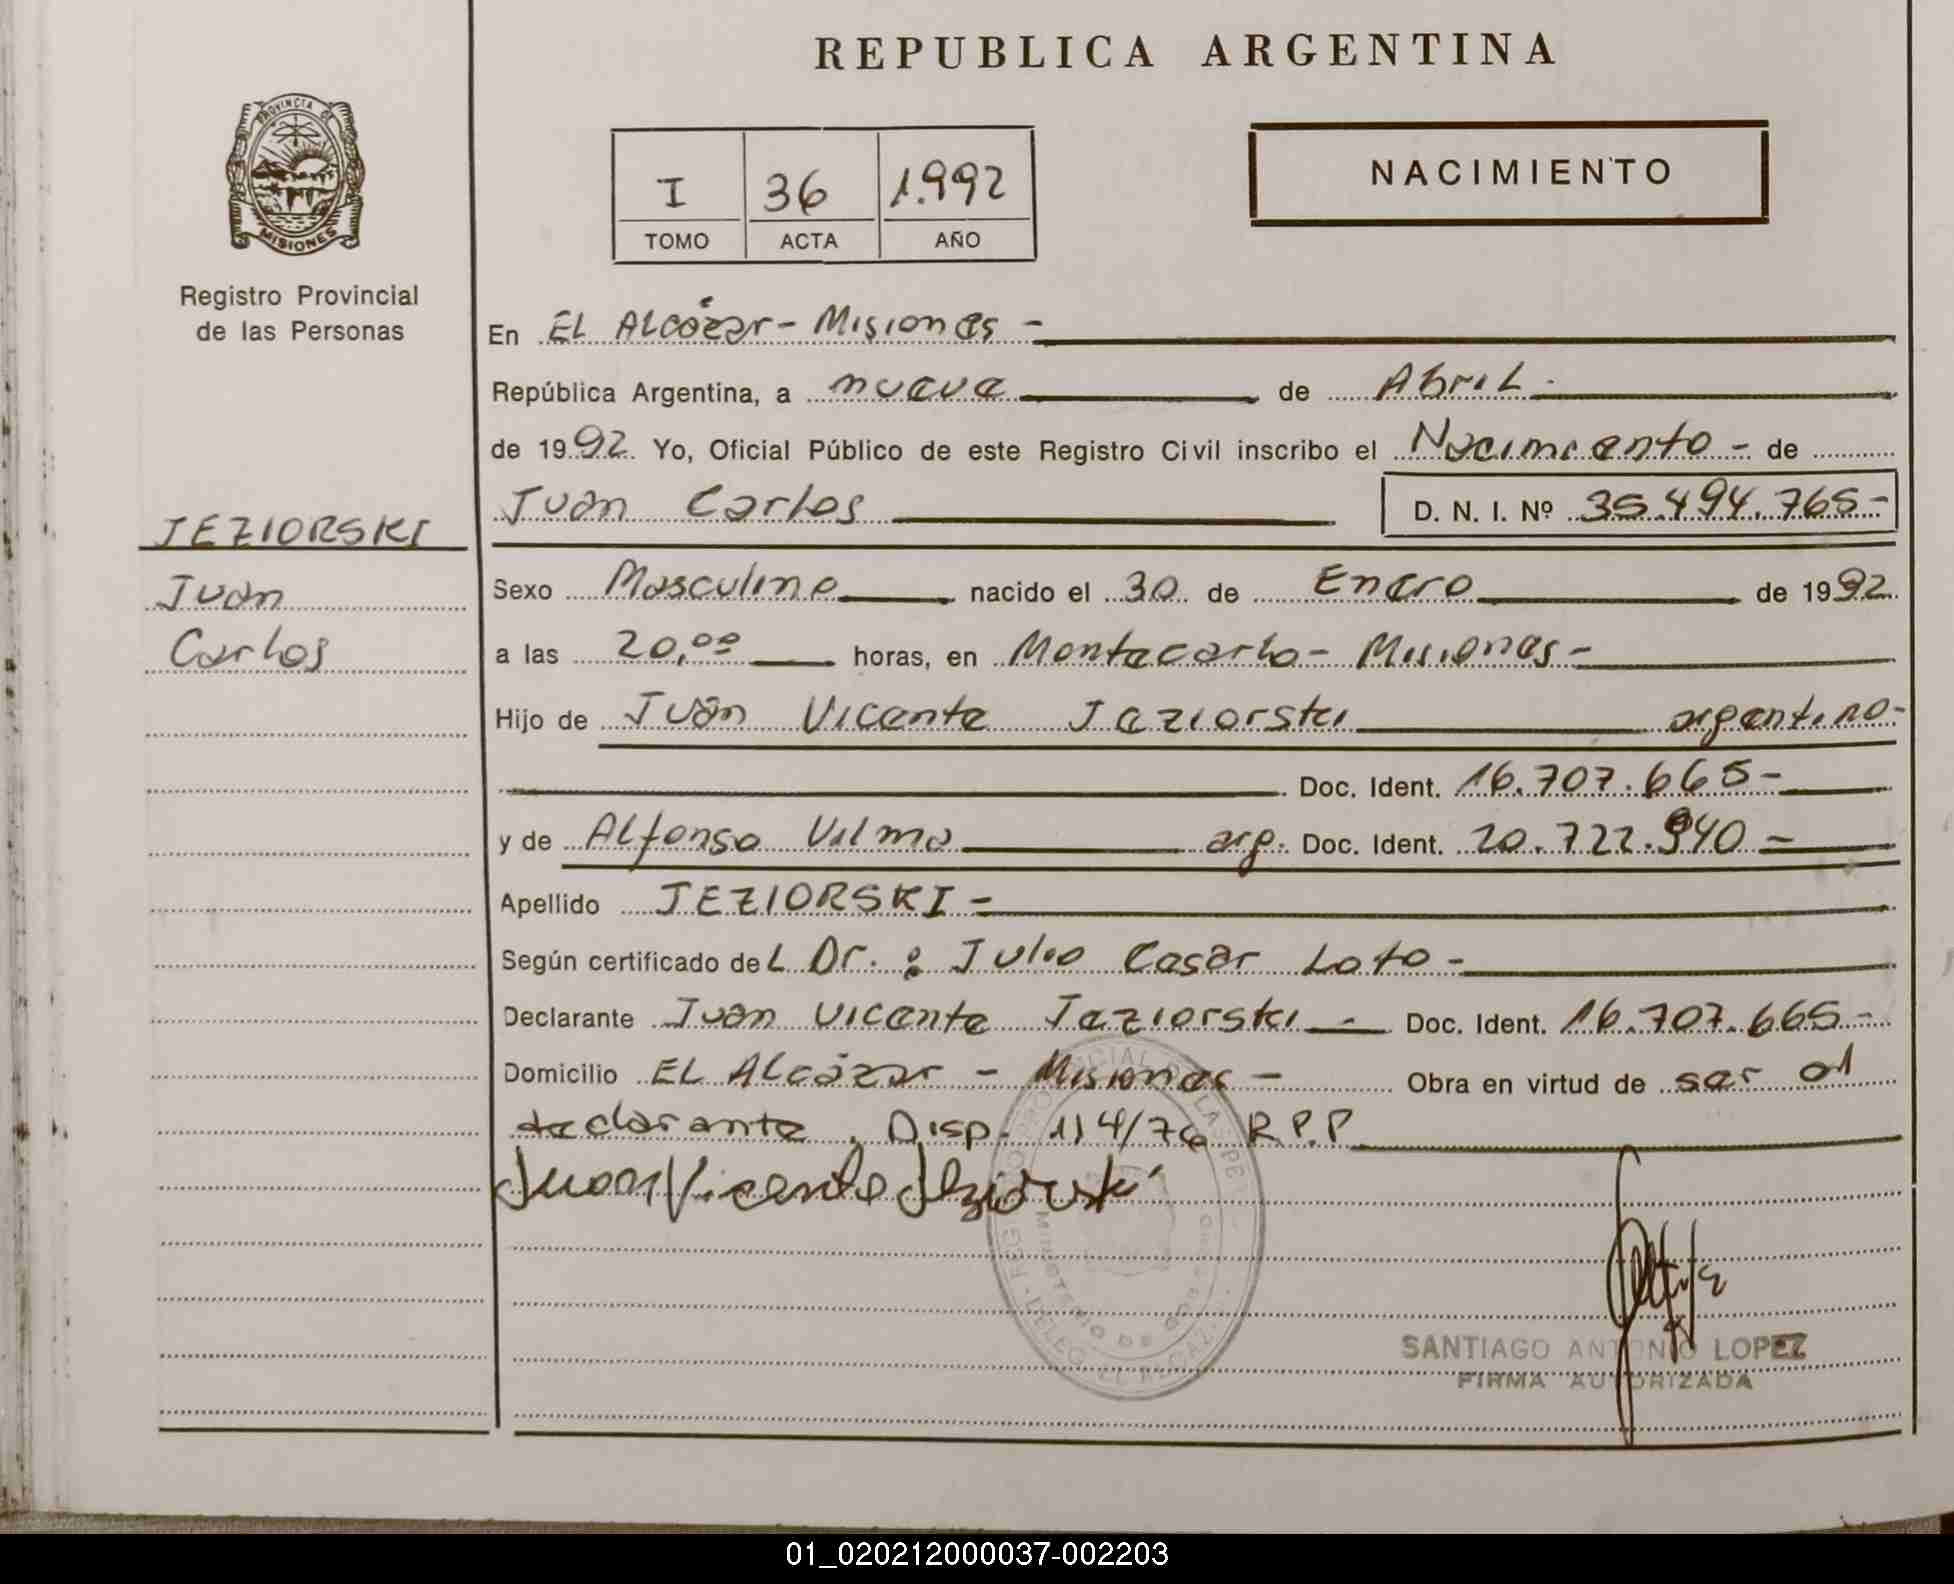 REPUBLICA ARGENTINA
PROVINCIA DE
MISIONES
Registro Provincial
de las Personas
I 36 1.992
TOMO ACTA AÑO
NACIMIENTO
En EL Alcázar - Misiones -
República Argentina, a nueve de Abril
de 1992. Yo, Oficial Público de este Registro Civil inscribo el Nacimiento - de
Juan Carlos D. N. I. Nº 35.494.765-
JEZIORSKI
Juan
Carlos
Sexo Masculino nacido el 30 de Enero de 1992
a las 20,00 horas, en Montecarlo - Misiones -
Hijo de Juan Vicente Jeziorski argentino-
Doc. Ident. 16.707.665-
y de Alfonso Vilma arg. Doc. Ident. 20.722.940 -
Apellido JEZIORSKI -
Según certificado deL Dr.: Julio Cesar Loto -
Declarante Juan Vicente Jeziorski - Doc. Ident. 16.707.665-
Domicilio EL Alcázar - Misiones - Obra en virtud de ser el
declarante. Disp. 114/76 R.P.P
Juan Vicente Jeziorski
SANTIAGO ANTONIO LOPEZ
FIRMA AUTORIZADA
01_020212000037-002203